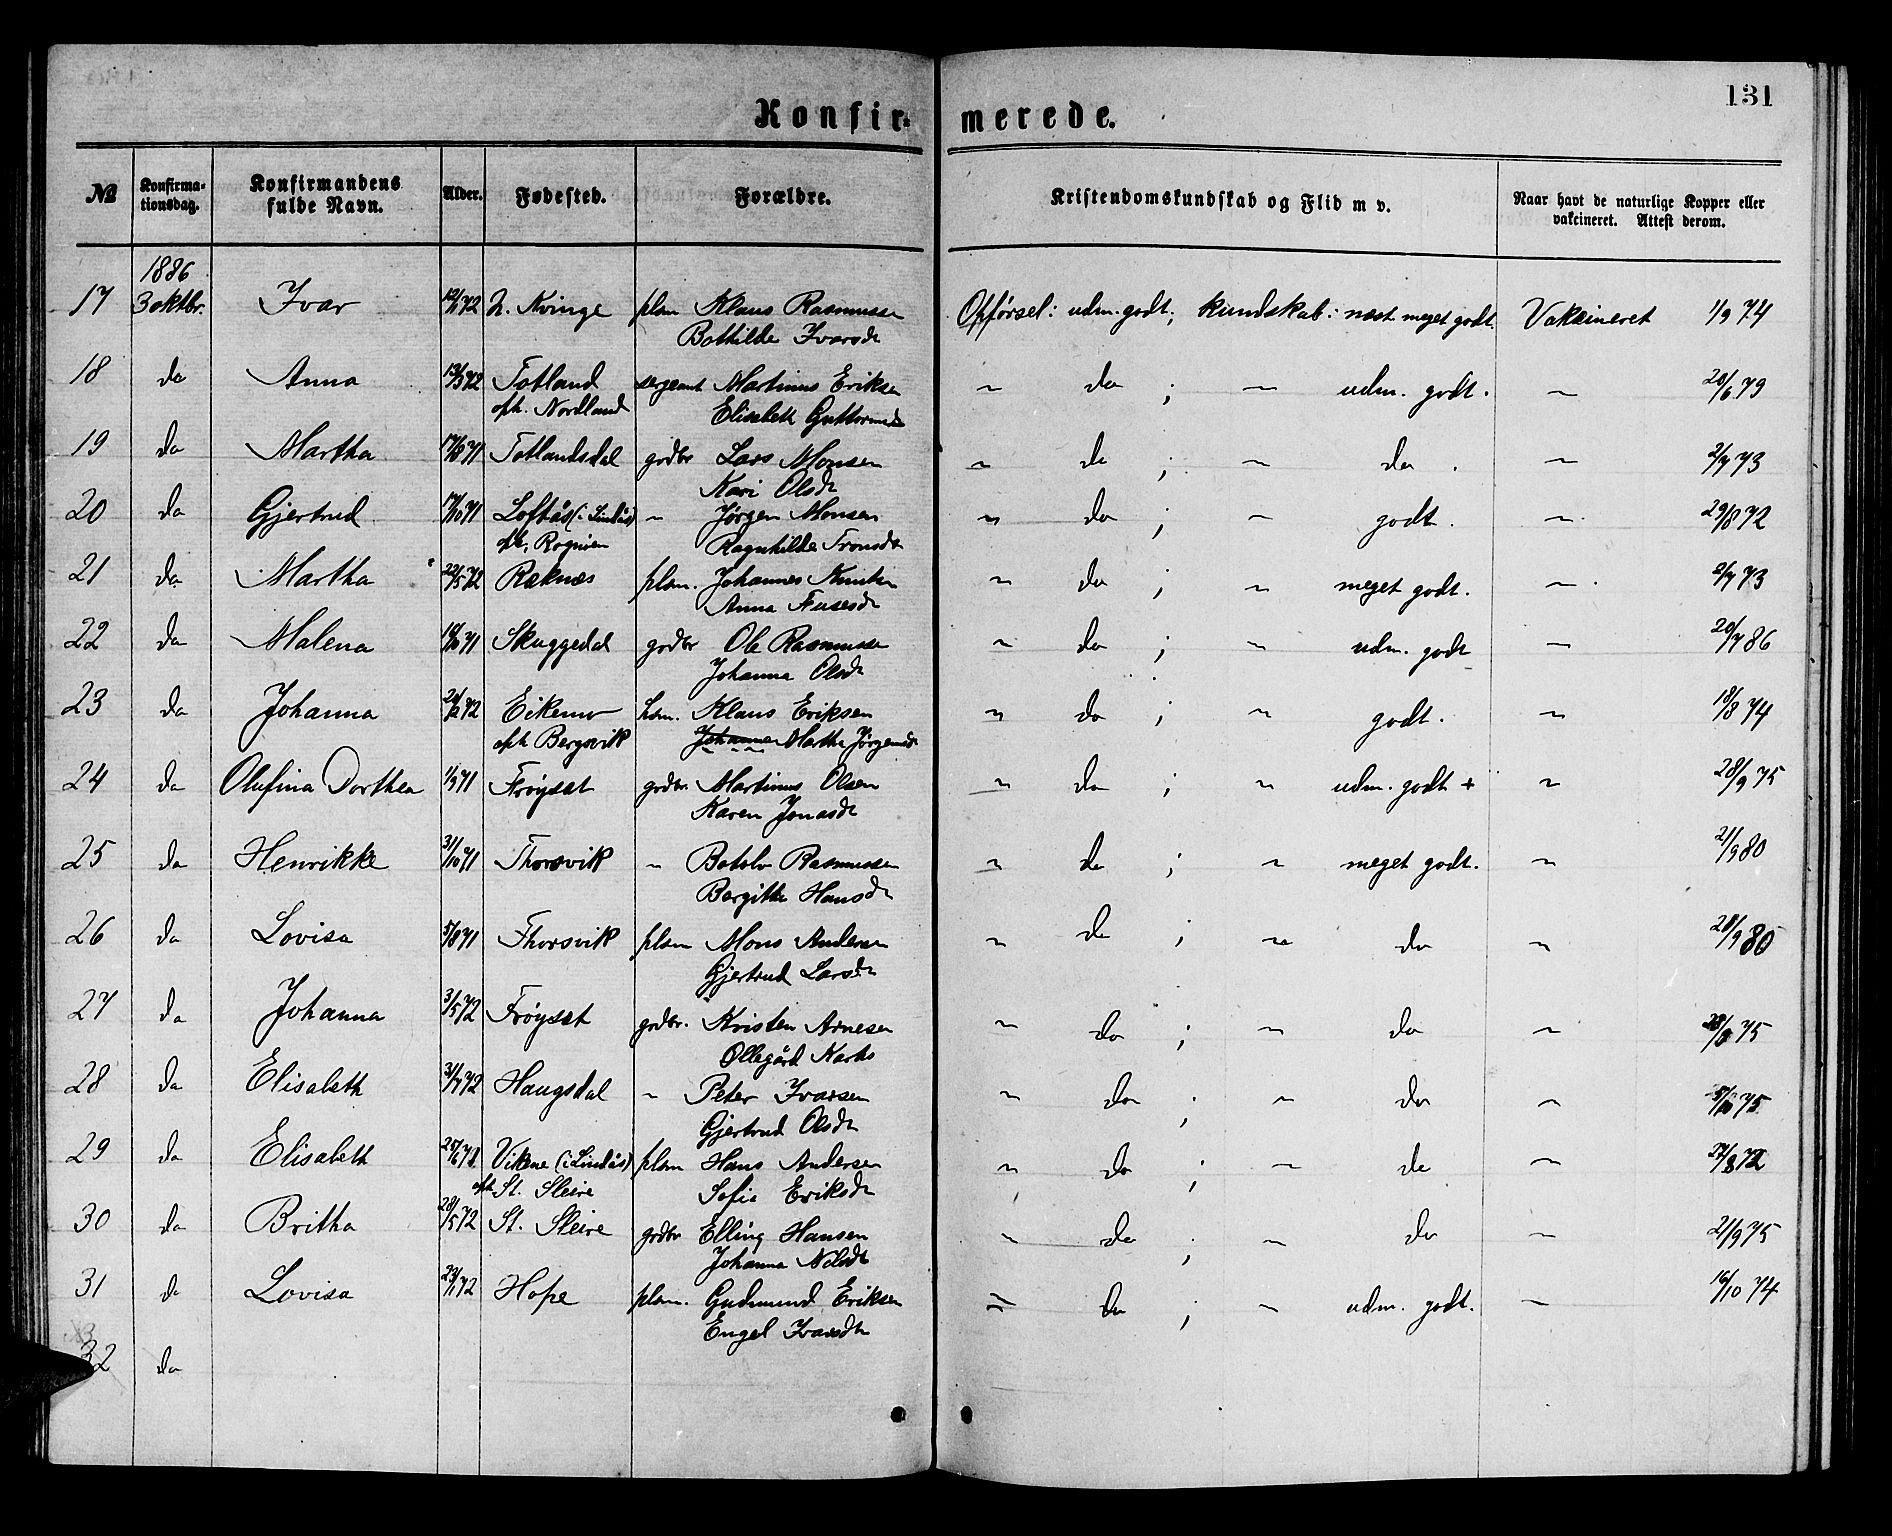 131
Konfir= merede.
№ Konfirma-tionsdag. Konfirmandens fulde Navn. Alder. Fødested. Forældre. Kristendomskundskab og Flid m v. Naar havt de naturlige Kopper eller vakcineret. Attest derom.
1886
17 3 oktbr. Ivar 72 N. Kvinge plsm Klaus Rasmussen Opførsel: udm. godt; kundskab: næst meget godt. Vakcineret 1/9 74
Bothilde Ivarsdr
18 do Anna 13/3 72 Totland sergeant Martinus Eriksen " do ; " udm. godt. " 20/6 79
oph. Nordland Elisabeth Guttormsd
19 do Martha 17/8 71 Totlandsdal grdbr Lars Monsen " do ; " do . " 2/7 73
Kari Olsdr
20 do Gjertrud 17/10 71 Loftås (i Lindås) " Jørgen Monsen " do ; " godt. " 29/8 72
oph. Rognen Ragnhilde Tronsdr
21 do Martha 22/5 72 Reknæs plsm. Johannes Knutsen " do ; " meget godt. " 2/7 73
Anna Fusesdr
22 do Malena 71 Skuggedal grdbr Ole Rasmussen " do ; " udm. godt " 20/7 86
Johanna Olsdr
23 do Johanna 72 Eikemo hsm. Klaus Eriksen " do ; " godt. " 18/8 74
oph Bergsvik Johanna Martha Jørgensdr
24 do Olufina Dorthea 1/9 71 Frøyset grdbr. Martinus Olsen " do ; " udm. godt + " 28/9 75
Karen Jonasdr
25 do Henrikke 31/10 71 Thorsvik " Botolv Rasmussen " do ; " meget godt. " 21/9 80
Bergitte Hansdr
26 do Lovisa 5/8 71 Thorsvik plsm Mons Andersen " do ; " do " 28/9 80
Gjertrud Larsdr
27 do Johanna 3/5 72 Frøyset grdbr. Kristen Arnesen " do ; " do " 75
Ollegård Karls
28 do Elisabeth 31/7 72 Haugsdal " Peter Ivarsen " do ; " do " 5/10 75
Gjertrud Olsdr
29 do Elisabeth Vikene (i Lindås) plsm Hans Andersen " do ; " do " 27/8 72
oph St. Sleire Sofie Eriksdr
30 do Britha 28/5 72 St. Sleire grdbr Elling Hansen " do ; " do " 21/9 75
Johanna Nilsdr
31 do Lovisa 23/1 72 Hope plsm. Gudmund Eriksen " do ; " udm. godt. " 16/10 74
Engel Ivarsdr
32 do